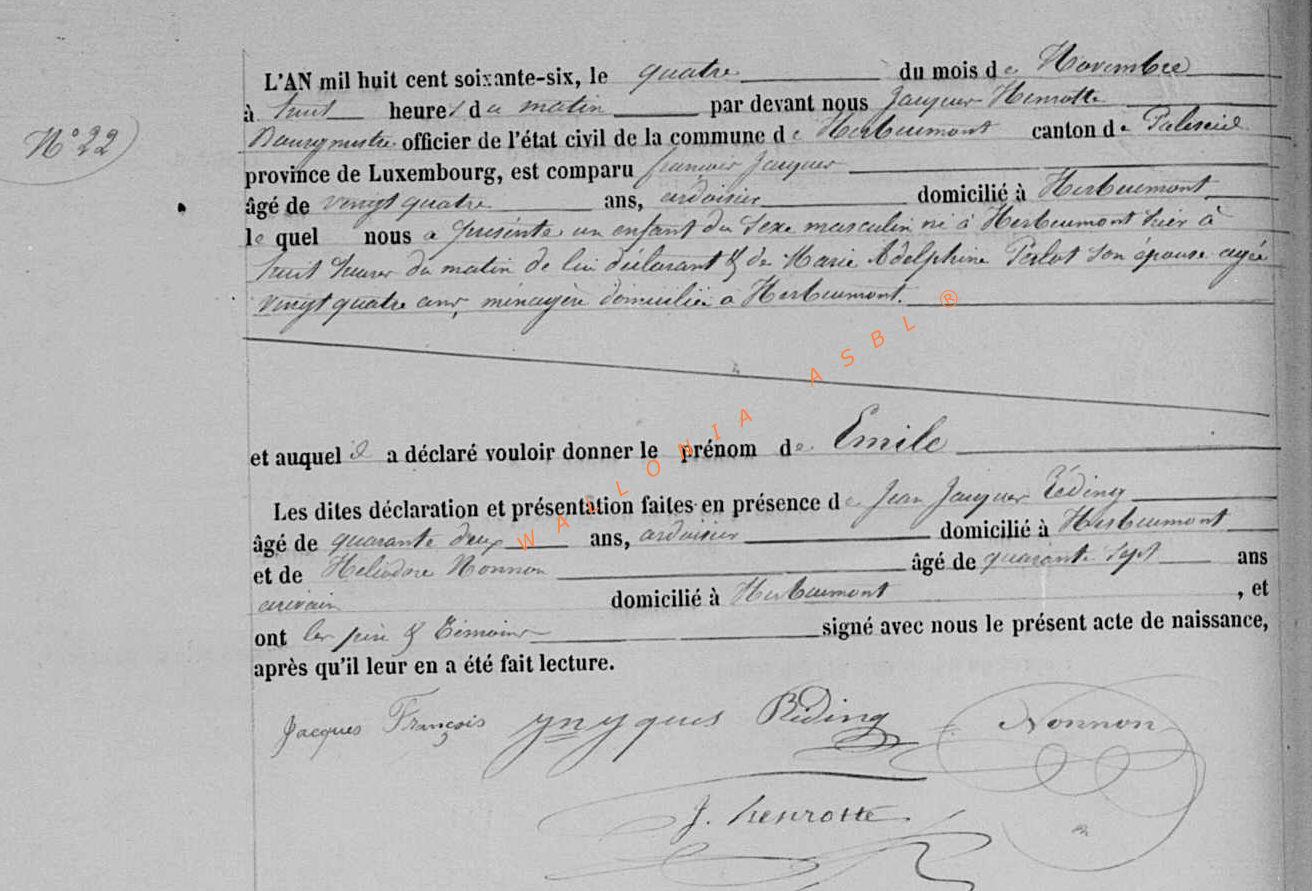 L'AN mil huit cent soixante-six, le quatre du mois de Novembre
à huit heures du matin par devant nous Jacques Henrotte
N° 22) Bourgmestre officier de l'état civil de la commune de Herbeumont canton de Paliseul
province de Luxembourg, est comparu françois Jacques
âgé de vingt quatre ans, ardoisier domicilié à Herbeumont
le quel nous a présenté un enfant du sexe masculin né à Herbeumont hier à
huit heures du matin de lui déclarant & de Marie Adelphine Perlot son épouse agée
vingt quatre ans, ménagère domiciliée à Herbeumont.
et auquel il a déclaré vouloir donner le prénom de Emile
Les dites déclaration et présentation faites en présence de Jean Jacques Réding
âgé de quarante deux ans, ardoisier domicilié à Herbeumont
et de Héliodore Nonnon âgé de quarante sept ans
domicilié à Herbeumont, et
ont les père & témoins signé avec nous le présent acte de naissance,
après qu'il leur en a été fait lecture.
Jacques François Réding Nonnon
J. henrotte
WALLONIA ASBL ®